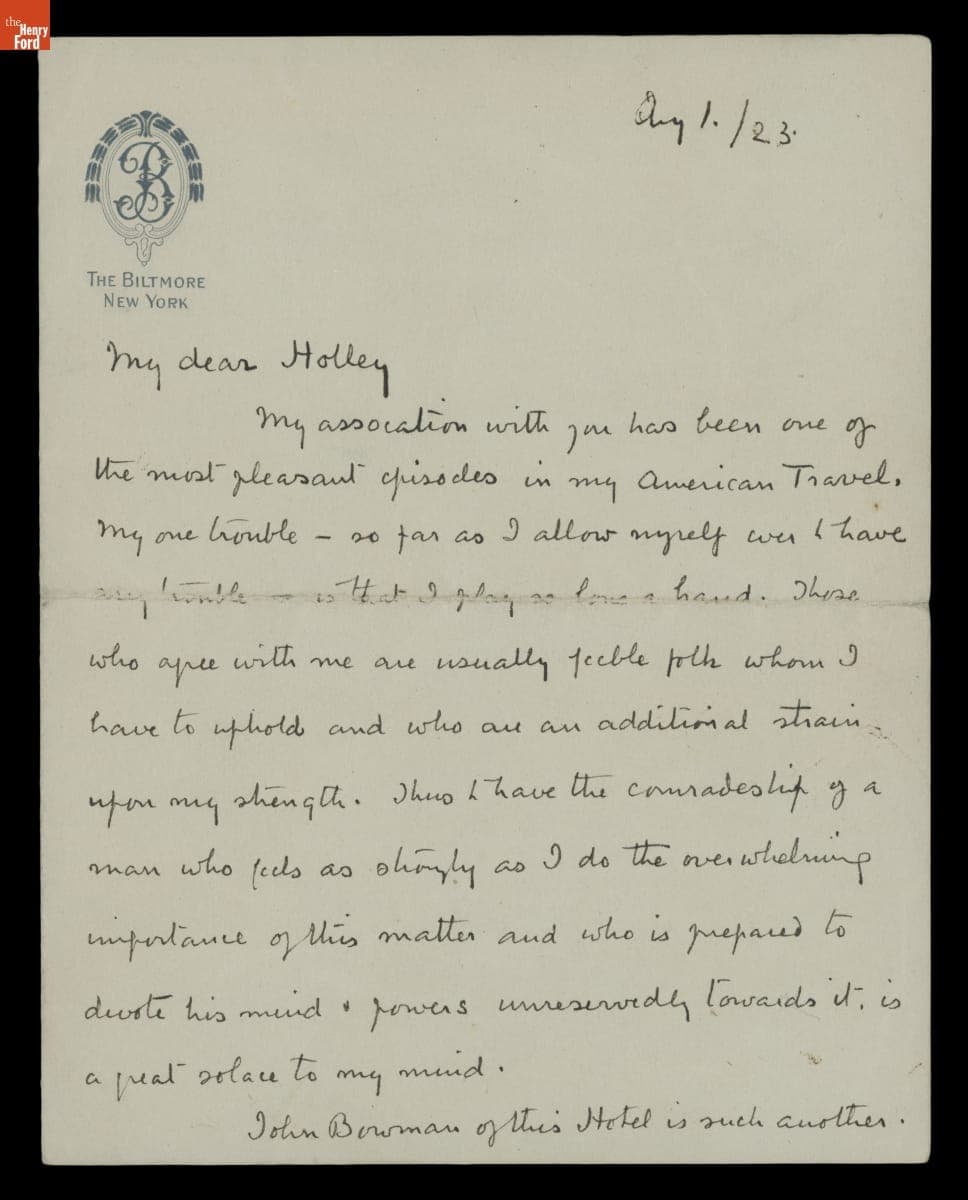 the
Henry
Ford
Aug 1. /23.
B
THE BILTMORE
NEW YORK
My dear Holley
My assocation with you has been one of
the most pleasant episodes in my American Travel.
My one trouble – so far as I allow myself ever to have
any trouble – is that I play so lone a hand. Those
who agree with me are usually feeble folk whom I
have to uphold and who are an additional strain
upon my strength. Thus to have the comradeship of a
man who feels as strongly as I do the overwhelming
importance of this matter and who is prepared to
devote his mind & powers unreservedly towards it, is
a great solace to my mind.
John Bowman of this Hotel is such another.